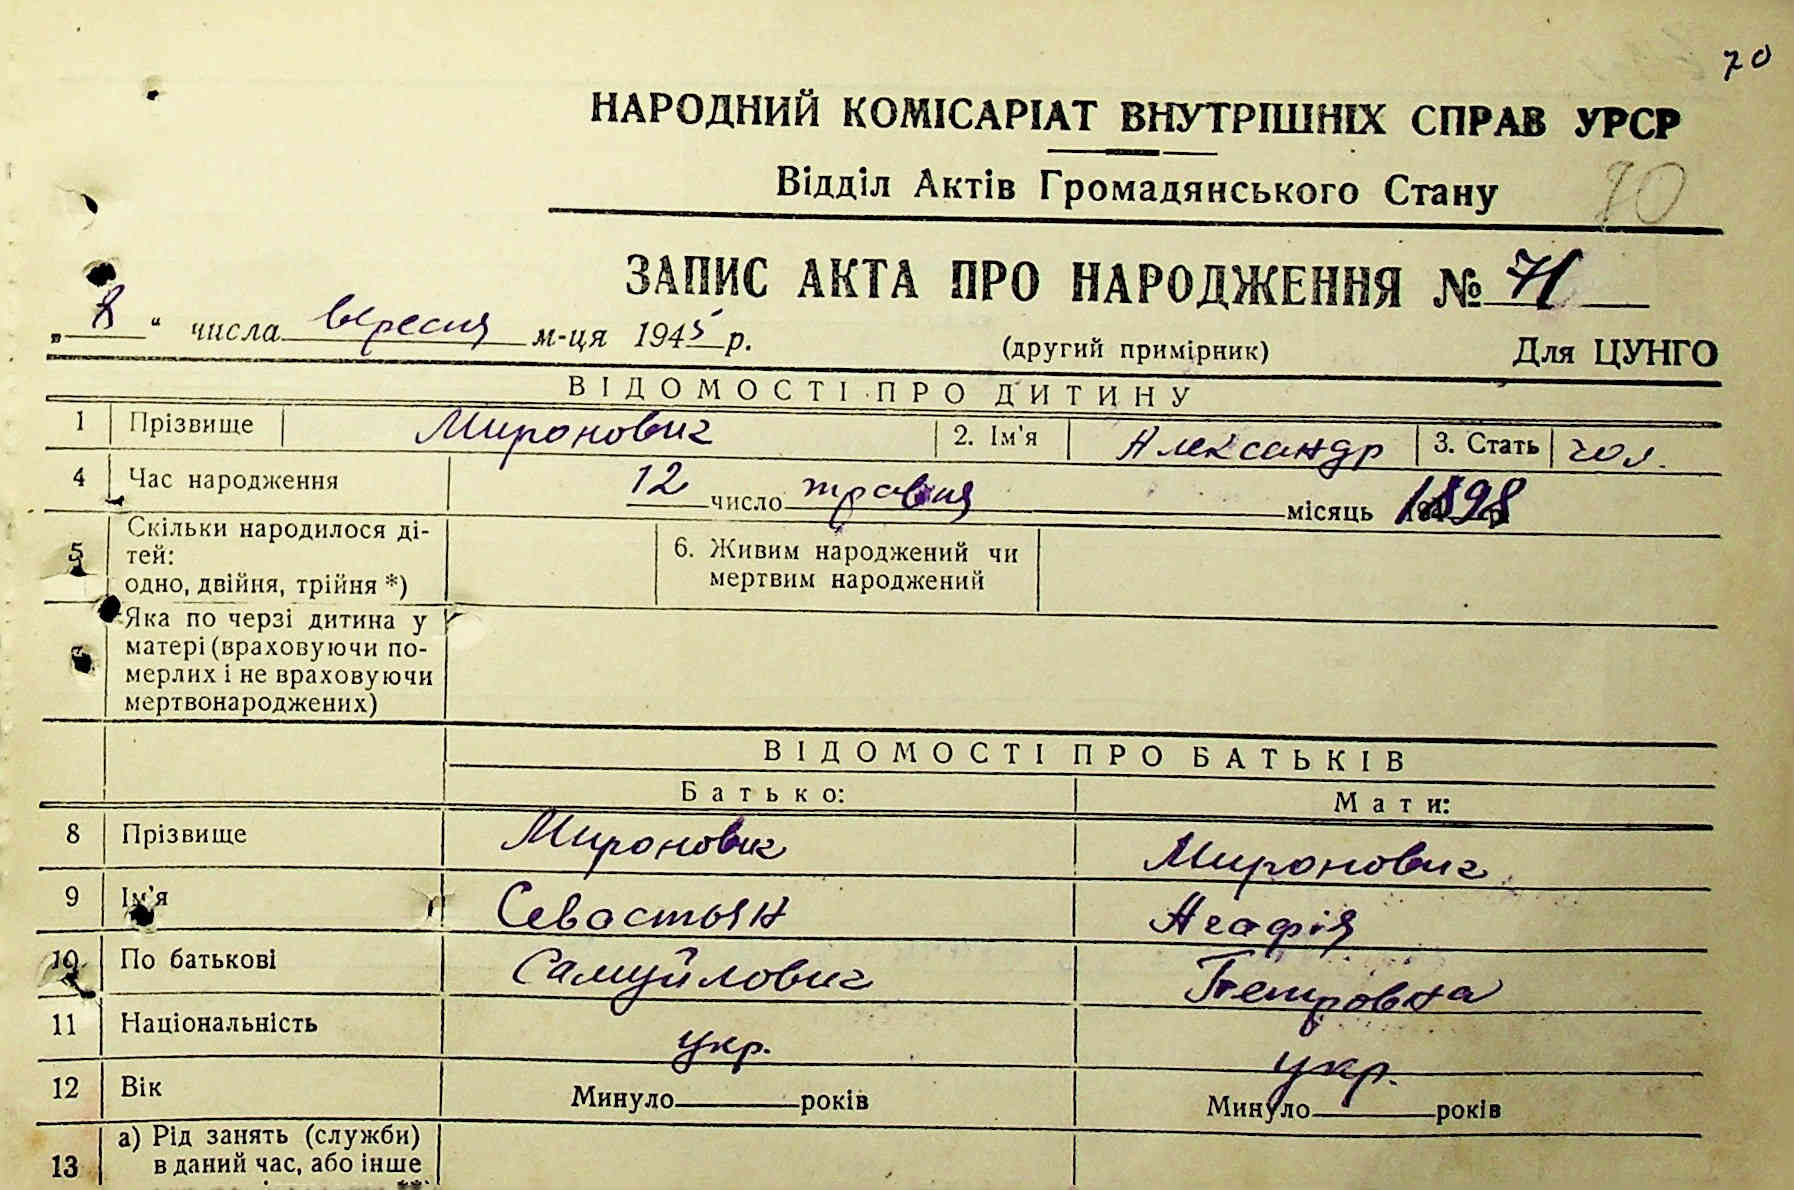 70
НАРОДНИЙ КОМІСАРІАТ ВНУТРІШНІХ СПРАВ УРСР
Відділ Актів Громадянського Стану
70
ЗАПИС АКТА ПРО НАРОДЖЕННЯ № 71
„8“ числа вересня м-ця 1945 р. (другий примірник) Для ЦУНГО
ВІДОМОСТІ ПРО ДИТИНУ
1 Прізвище Миронович 2. Ім'я Александр 3. Стать чол.
4 Час народження 12 число травня місяць 1898
5 Скільки народилося ді-
тей:
одно, двійня, трійня *)
6. Живим народжений чи
мертвим народжений
Яка по черзі дитина у
матері (враховуючи по-
мерлих і не враховуючи
мертвонароджених)
ВІДОМОСТІ ПРО БАТЬКІВ
Батько: Мати:
8 Прізвище Миронович Миронович
9 Ім'я Севастьян Агафія
10 По батькові Самуйлович Петровна
11 Національність укр. укр.
12 Вік Минуло років Минуло років
13 а) Рід занять (служби)
в даний час, або інше